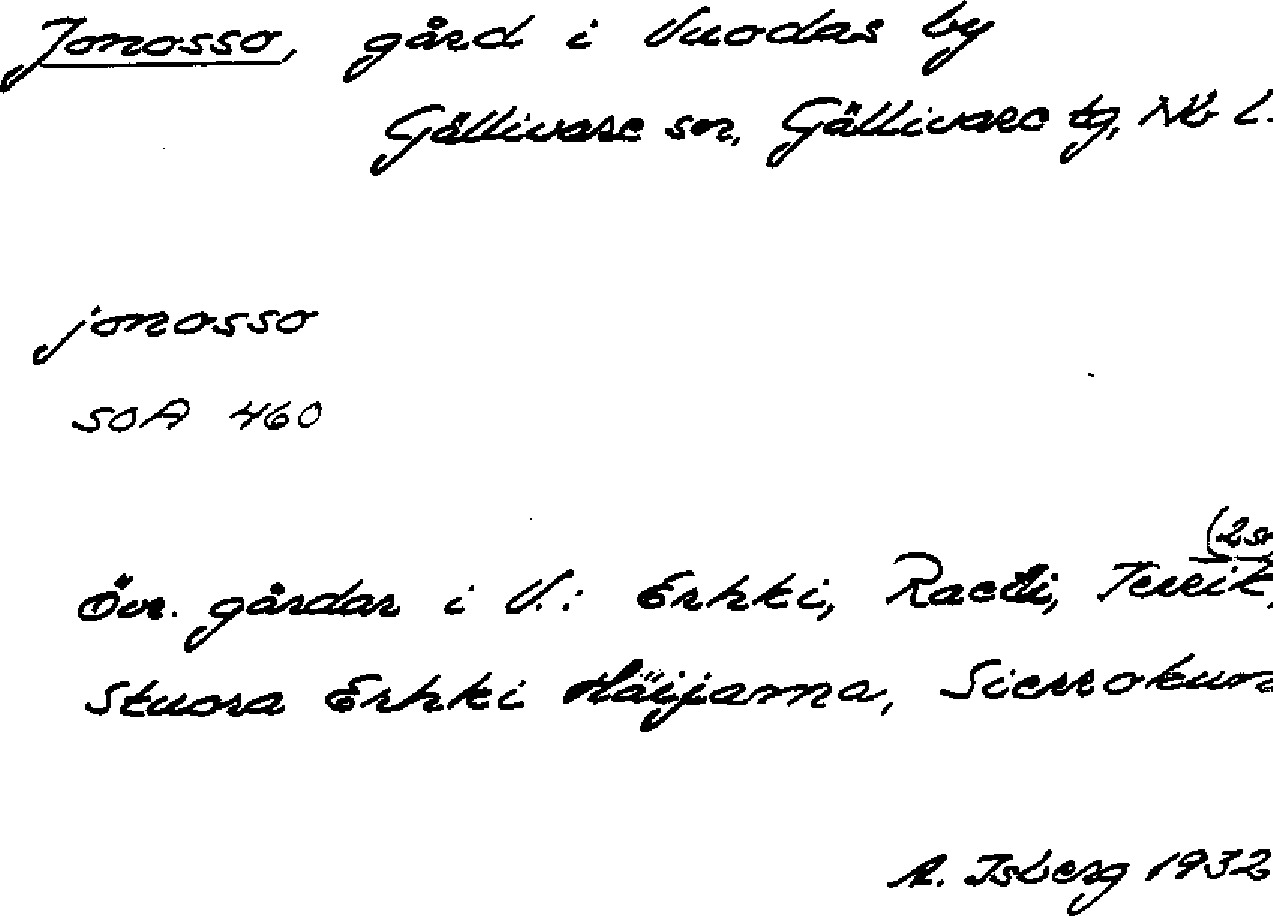 Jonosso, gård i Vuodas by
Gällivare sn, Gällivare tg, Nb l.
jonosso
SOA 460
(2 st
Övr. gårdar i V.: Erkki,
Stuora Erkki Häijanna,
A. Isberg 1932